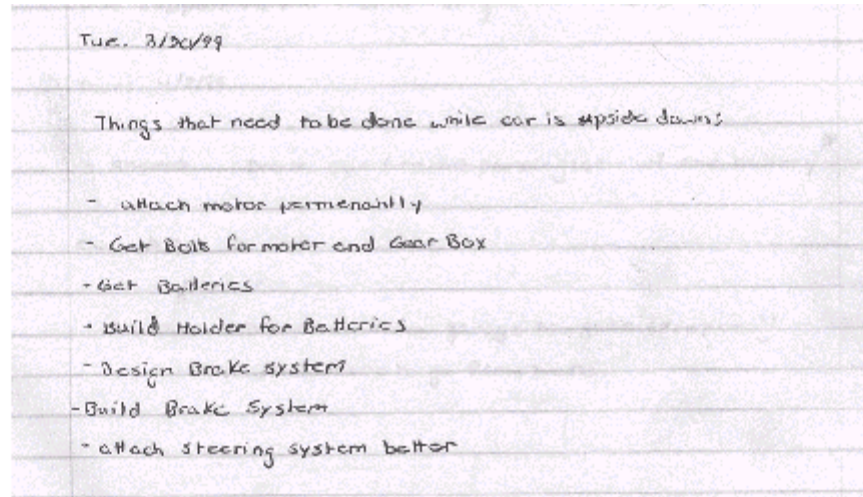 Tue. 3/30/99
Things that need to be done while car is upside down:
- attach motor permenantly
- Get Bolts for motor and Gear Box
- Get Batteries
- Build Holder for Batteries
- Design Brake system
- Build Brake System
- attach steering system better